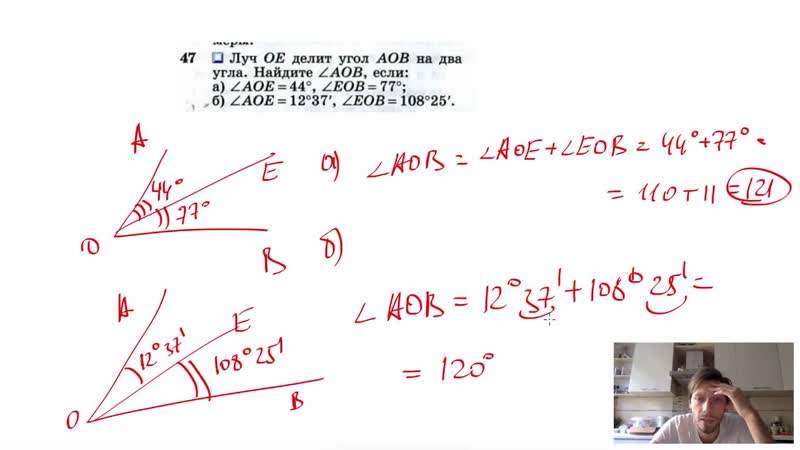 47 Луч OE делит угол AOB на два
угла. Найдите ∠AOB, если:
а) ∠AOE = 44°, ∠EOB = 77°;
б) ∠AOE = 12°37′, ∠EOB = 108°25′.
A
E
44°
77°
O
B
а) ∠AOB = ∠AOE + ∠EOB = 44° + 77° =
= 110 + 11 = 121
б)
A
E
12°37'
108°25'
O
B
∠AOB = 12°37' + 108°25' =
= 120°